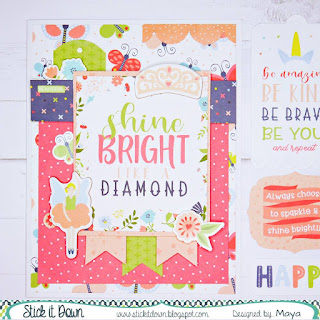 shine
BRIGHT
LIKE A
DIAMOND
Be amazing
BE KIN
BE BRAV
BE YOU
and repeat
Always choose
to sparkle &
shine brightly
HAPP
Stick it Down
www.stickitdown.blogspot.com
Designed by: Maya